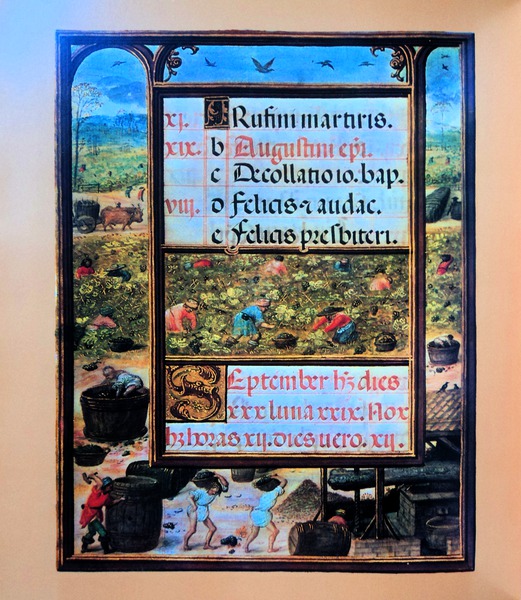 xj. A Rufini martiris.
xix. b Augustini epi.
c Decollatio io. bap.
viij. d felicis ⁊ audac.
e felicis presbiteri.
September hz dies
xxx luna xxix. Nox
hz horas xij. dies uero. xij.